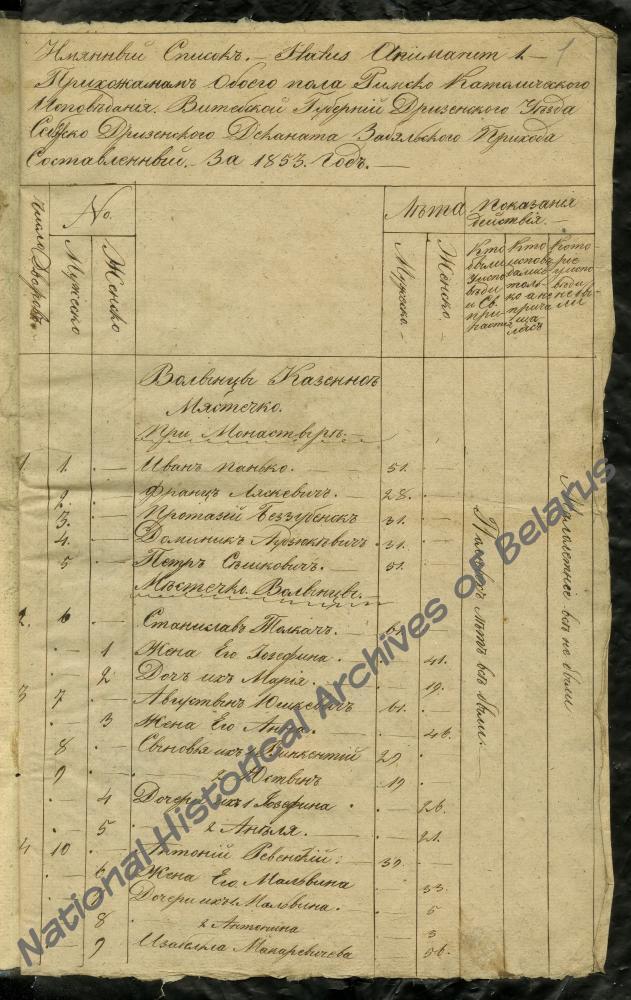 1
Имянный Списокъ. – Status Animarum 1. –
Прихожанамъ Обоего пола Римско Католического
Исповѣданія. Витебской Губерніи Дризенского Уѣзда
Дризенского Деканата Забяльского Прихода
Составленный. – За 1853. Годъ. –
Число Дворовъ
No.
Мужеско
Женско
Лѣта
Мужеско.
Женско.
Показанія дѣйствія.
Кто были у исповѣди и Св. причастія
Кто исповѣдались только а не причащались
Которые у исповѣди не были
Волынцы Казенное
Мястечко.
При Монастырѣ. –
1. 1. Иванъ Панько. 51.
2. Францъ Ляскевичъ. 28.
3. Протазій 31.
4. Доминикъ 31.
5 Петръ 51.
Мѣстечко Волынцы.
2. 6 Станиславъ Толкачъ. 61.
1 Жена Его Іозефина. 41.
2 Дочь ихъ Марія. 19.
3 7 Августынъ Юшкевичъ 61.
3 Жена Его Анна. 46.
8 Сыновья ихъ 1 Винкентій 29.
9 2 Юстынъ 19
4 Дочери ихъ 1 Іозефина 26.
5 2 Анѣля. 21.
4 10 Антоній Ревенскій: 39.
6 Жена Его Мальвина 33.
Дочери ихъ 1 Мальвина. 5
8 2 Антонина 3
9 Изабелла Макаревичева 56.
лѣтъ всѣ были.
Малалетнее всѣ не были
National Historical Archives of Belarus